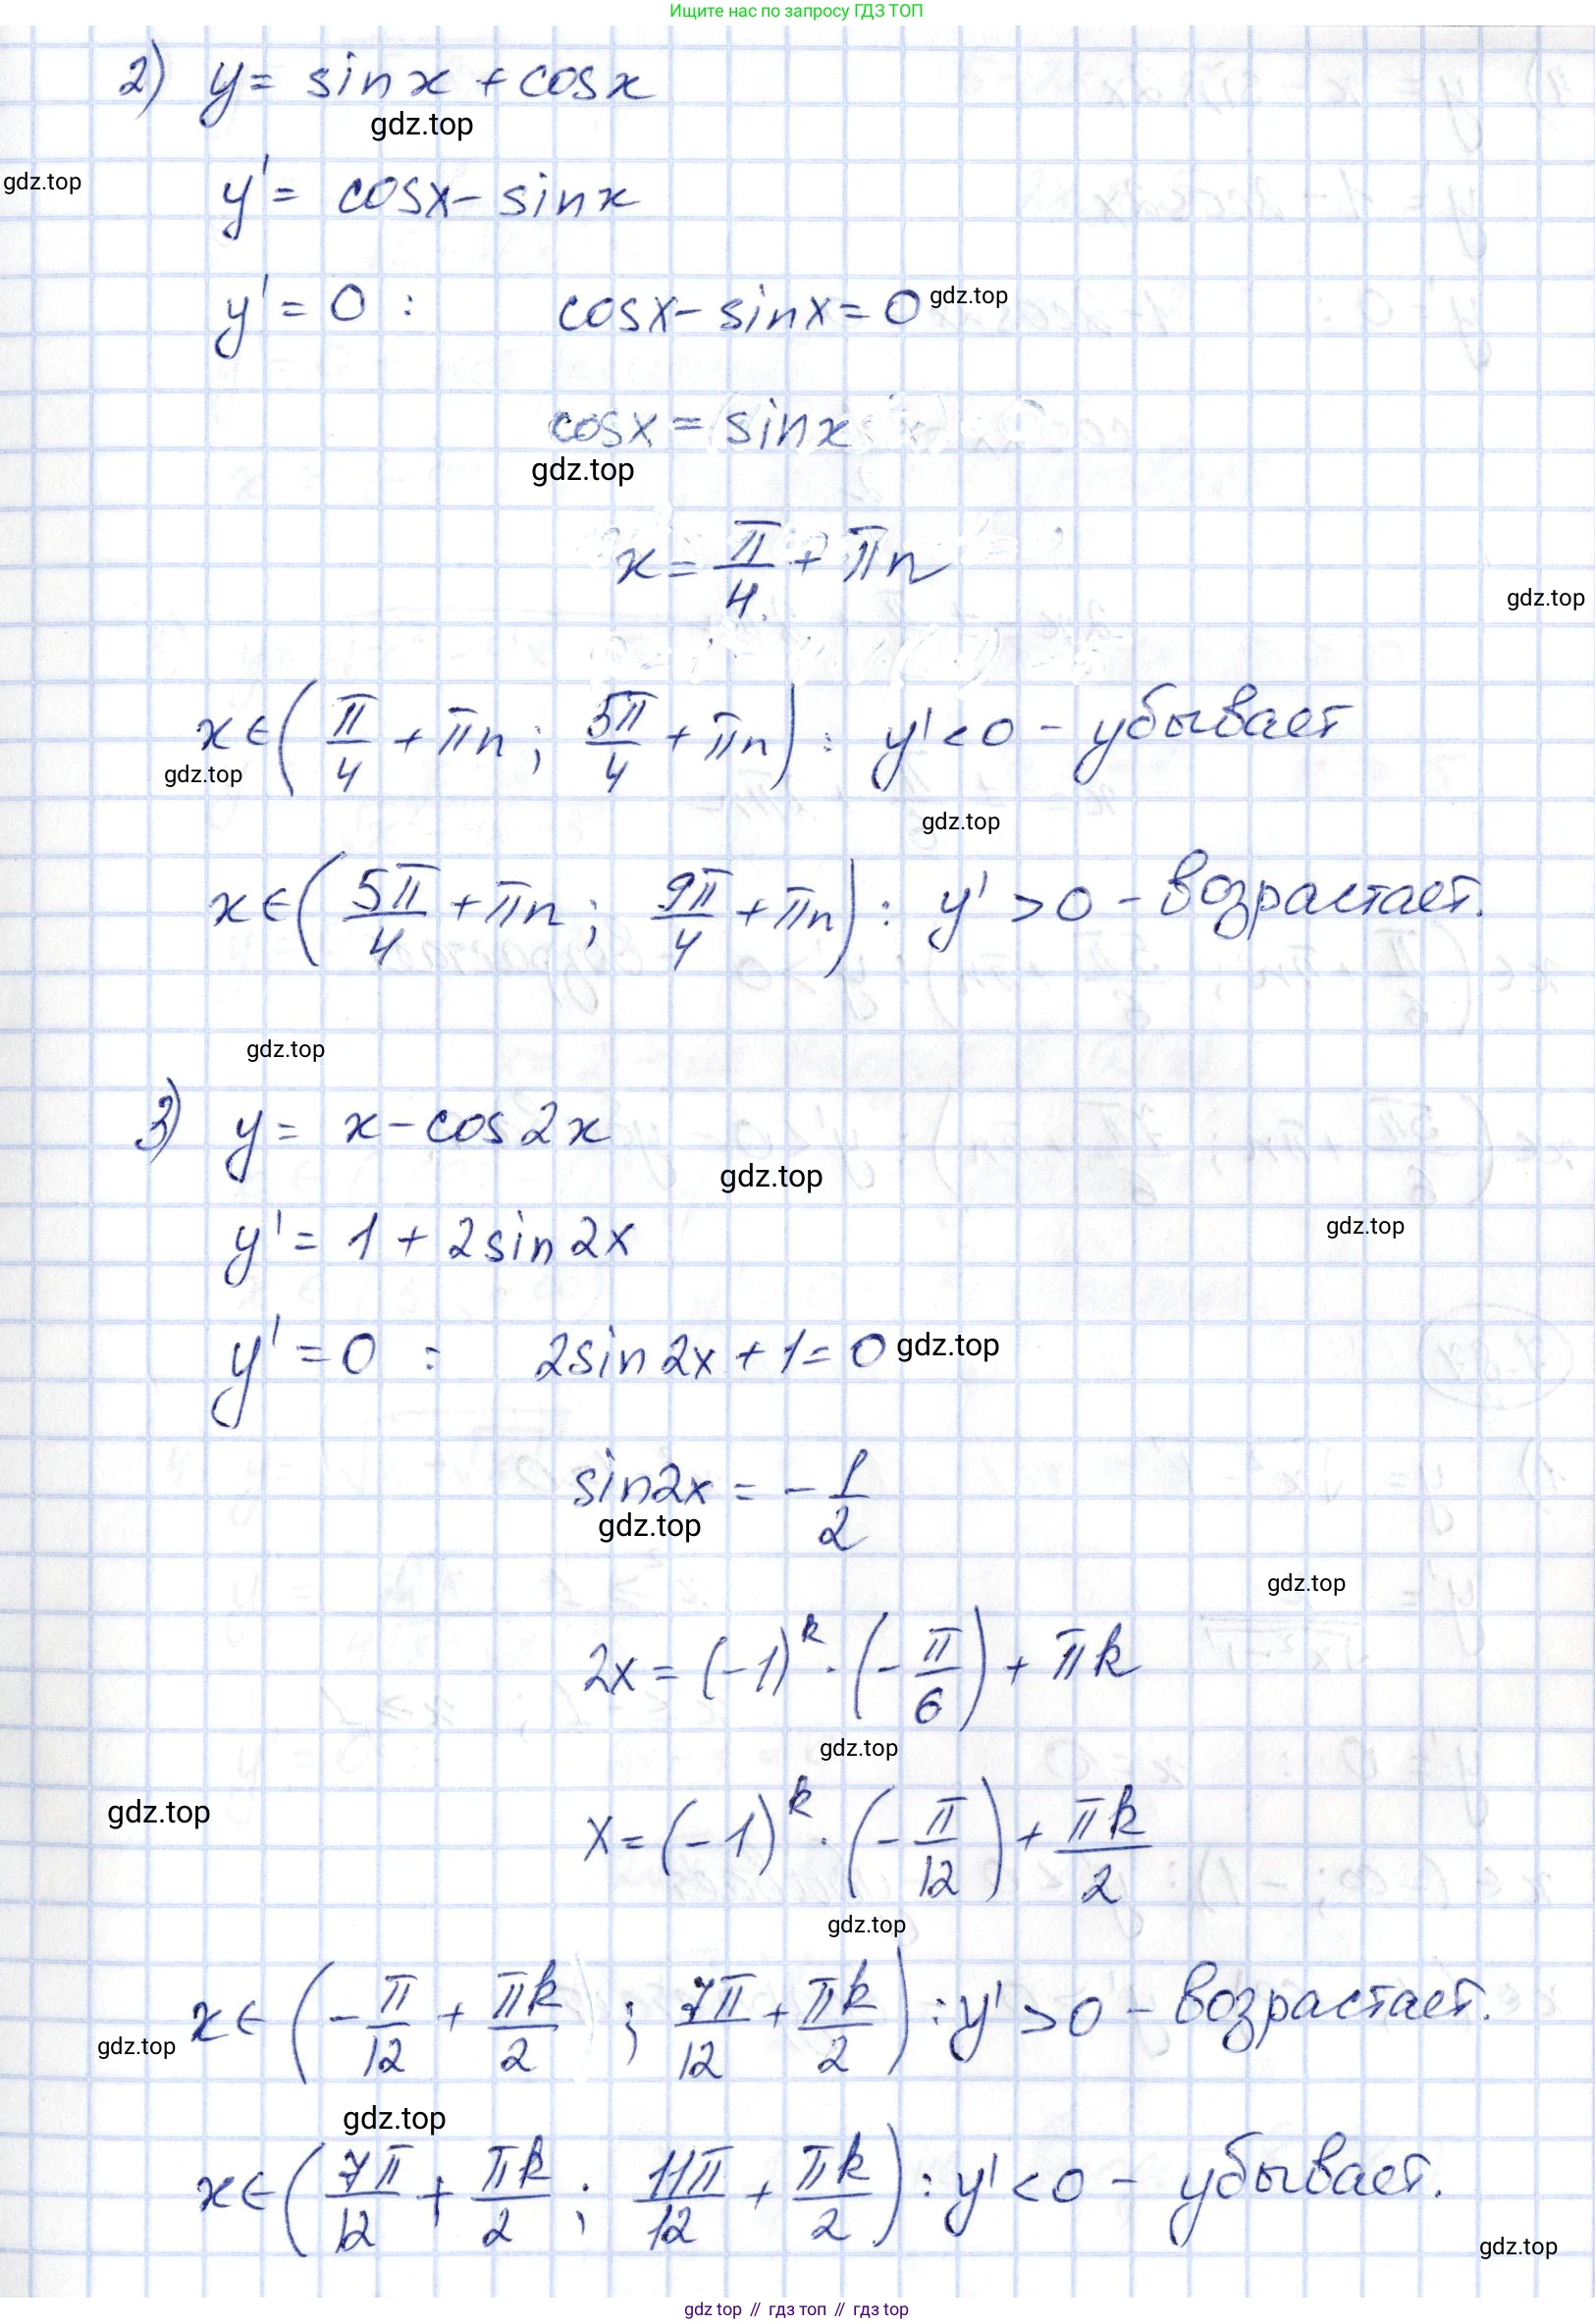 Ищите нас по запросу ГДЗ ТОП
2) y = sin x + cos x
gdz.top
gdz.top
y' = cos x - sin x
y' = 0 : cos x - sin x = 0 gdz.top
cos x = sin x
gdz.top
x = π/4 + πn
gdz.top
x ∈ (π/4 + πn ; 5π/4 + πn) : y' < 0 - убывает
gdz.top
gdz.top
x ∈ (5π/4 + πn ; 9π/4 + πn) : y' > 0 - возрастает.
gdz.top
3) y = x - cos 2x
gdz.top
y' = 1 + 2 sin 2x
gdz.top
y' = 0 : 2 sin 2x + 1 = 0 gdz.top
sin 2x = - 1/2
gdz.top
gdz.top
2x = (-1)^k · (- π/6) + πk
gdz.top
gdz.top
x = (-1)^k · (- π/12) + πk/2
gdz.top
x ∈ (- π/12 + πk/2 ; 7π/12 + πk/2) : y' > 0 - возрастает.
gdz.top
gdz.top
x ∈ (7π/12 + πk/2 ; 11π/12 + πk/2) : y' < 0 - убывает.
gdz.top
gdz top // гдз топ // гдз top